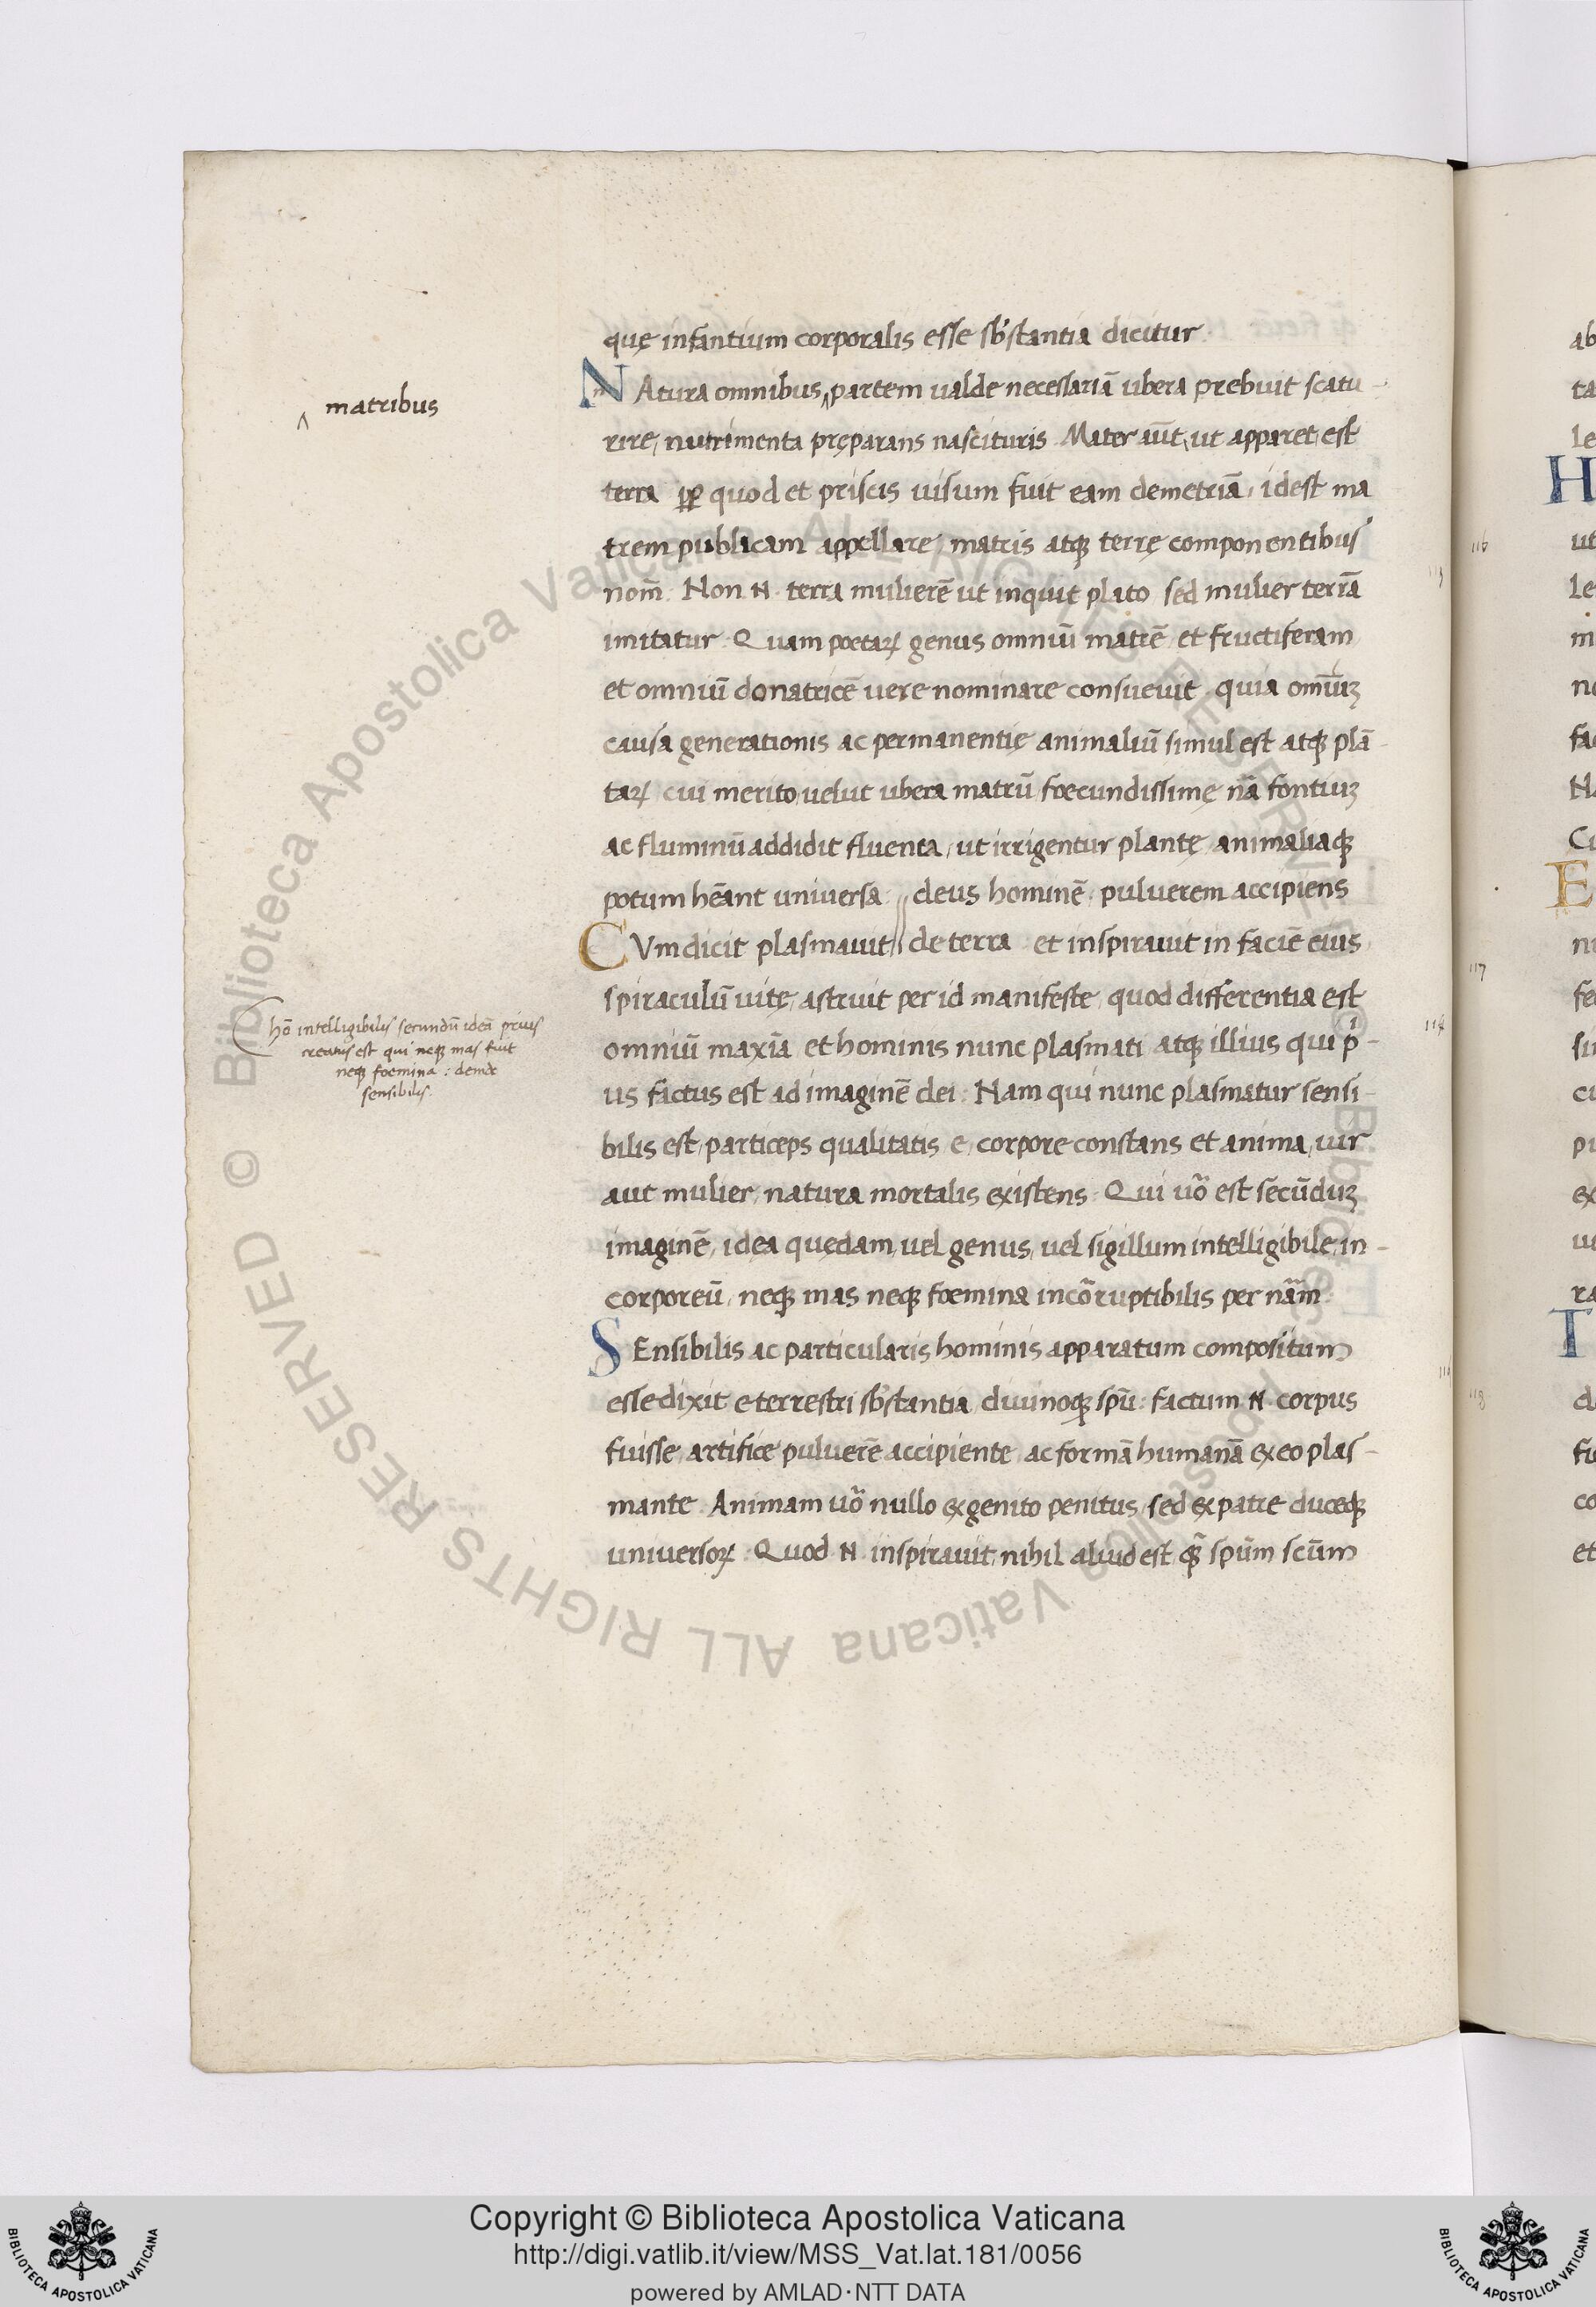 quę infantium corporalis esse sb'stantia dicitur
NAtura omnibus ^ partem ualde necessariā ubera prebuit scatu-
^ matribus
rire, nutrimenta pręparans nascituris. Mater aūt, ut apparet, est
terra quod et priscis uisum fuit eam demetriā, idest ma
trem publicam appellare, matris atq; terrę componentibus
nom̄. Non .N. terra mulierē ut inquit plato sed mulier terrā
imitatur. Quam poetaꝝ genus omniū matrē et fructiferam
et omniū donatricē uere nominare consueuit. quia omīuꝫ
causa generationis ac permanentię animaliū simul est atq; plā-
taꝝ cui merito, uelut ubera matrū foecundissimę nā fontiuꝫ
ac fluminū addidit fluenta, ut irrigentur plantę animaliaq;
potum hēant uniuersa. // deus hominē. puluerem accipiens
CVm dicit plasmauit // de terra et inspirauit in faciē eius
spiraculū uitę, astruit per id manifeste, quod differentia est
hō intelligibilis secundū ideā prius
creatus est qui neq; mas fuit
neq; foemina : deinde
sensibilis.
omniū maxīa et hominis nunc plasmati atq; illius qui pⁱ-
us factus est ad imaginē dei. Nam qui nunc plasmatur sensi-
bilis est, particeps qualitatis e, corpore constans et anima, uir
aut mulier, natura mortalis existens. Qui uō est secūduꝫ
imaginē, idea quędam, uel genus, uel sigillum intelligibile, in-
corporeū, neq; mas neq; foemina incōruptibilis per nām
SEnsibilis ac particularis hominis apparatum compositum
esse dixit e terrestri sb'stantia diuinoq; spū: factum .N. corpus
fuisse, artifice puluerē accipiente, ac formā humanā ex eo plas-
mante. Animam uō nullo ex genito penitus, sed ex patre duceq;
uniuersoꝝ. Quod .N. inspirauit, nihil aliud est q̄ spūm scūm
116
117
114
118
Copyright © Biblioteca Apostolica Vaticana
http://digi.vatlib.it/view/MSS_Vat.lat.181/0056
powered by AMLAD·NTT DATA
BIBLIOTECA APOSTOLICA VATICANA
BIBLIOTECA APOSTOLICA VATICANA
© Biblioteca Apostolica Vaticana ALL RIGHTS RESERVED © Biblioteca Apostolica Vaticana ALL RIGHTS RESERVED